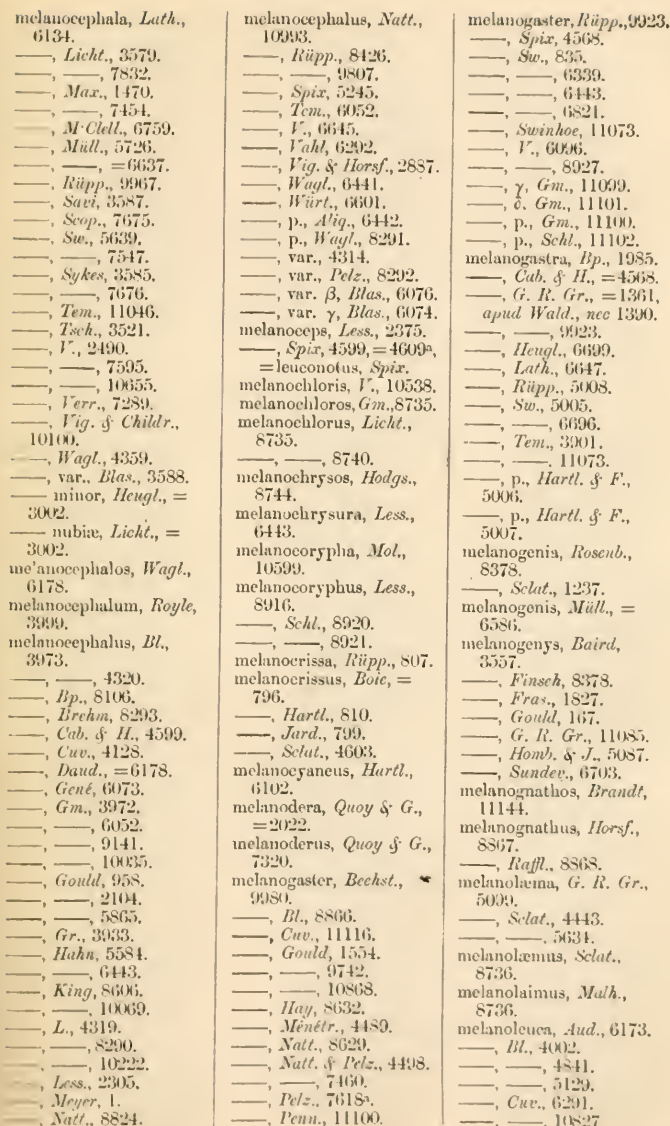 melanocephala, Lath.,
6134.
——, Licht., 3579.
——, ——, 7832.
——, Max., 1470.
——, ——, 7454.
——, M·Clell., 6759.
——, Müll., 5726.
——, ——, =6637.
——, Rüpp., 9967.
——, Savi, 3587.
——, Scop., 7675.
——, Sw., 5639.
——, ——, 7547.
——, Sykes, 3585.
——, ——, 7676.
——, Tem., 11046.
——, Tsch., 3521.
——, V., 2490.
——, ——, 7595.
——, ——, 10655.
——, Verr., 7289.
——, Vig. & Childr.,
10100.
——, Wagl., 4359.
——, var., Blas., 3588.
—— minor, Heugl., =
3002.
—— nubiæ, Licht., =
3002.
melanocephalos, Wagl.,
6178.
melanocephalum, Royle,
3999.
melanocephalus, Bl.,
3973.
——, ——, 4320.
——, Bp., 8106.
——, Brehm, 8293.
——, Cab. & H., 4599.
——, Cuv., 4128.
——, Daud., =6178.
——, Gené, 6073.
——, Gm., 3972.
——, ——, 6052.
——, ——, 9141.
——, ——, 10035.
——, Gould, 958.
——, ——, 2104.
——, ——, 5865.
——, Gr., 3933.
——, Hahn, 5584.
——, ——, 6443.
——, King, 8606.
——, ——, 10069.
——, L., 4319.
——, ——, 8290.
——, ——, 10222.
——, Less., 2305.
——, Meyer, 1.
——, Natt., 8824.
melanocephalus, Natt.,
10993.
——, Rüpp., 8426.
——, ——, 9807.
——, Spix, 5245.
——, Tem., 6052.
——, V., 6645.
——, Vahl, 6292.
——, Vig. & Horsf., 2887.
——, Wagl., 6441.
——, Würt., 6601.
——, p., Aliq., 6442.
——, p., Wagl., 8291.
——, var., 4314.
——, var., Pelz., 8292.
——, var. β, Blas., 6076.
——, var. γ, Blas., 6074.
melanoceps, Less., 2375.
——, Spix, 4599, =4609ᵃ,
=leuconotus, Spix.
melanochloris, V., 10538.
melanochloros, Gm., 8735.
melanochlorus, Licht.,
8735.
——, ——, 8740.
melanochrysos, Hodgs.,
8744.
melanochrysura, Less.,
6443.
melanocorypha, Mol.,
10599.
melanocoryphus, Less.,
8916.
——, Schl., 8920.
——, ——, 8921.
melanocrissa, Rüpp., 807.
melanocrissus, Boie, =
796.
——, Hartl., 810.
——, Jard., 799.
——, Sclat., 4603.
melanocyaneus, Hartl.,
6102.
melanodera, Quoy & G.,
=2022.
melanoderus, Quoy & G.,
7320.
melanogaster, Bechst.,
9980.
——, Bl., 8866.
——, Cuv., 11116.
——, Gould, 1554.
——, ——, 9742.
——, ——, 10868.
——, Hay, 8632.
——, Ménétr., 4489.
——, Natt., 8629.
——, Natt. & Pelz., 4498.
——, ——, 7460.
——, Pelz., 7618ᵃ.
——, Penn., 11100.
melanogaster, Rüpp., 9923.
——, Spix, 4568.
——, Sw., 835.
——, ——, 6339.
——, ——, 6443.
——, ——, 6821.
——, Swinhoe, 11073.
——, V., 6096.
——, ——, 8927.
——, γ, Gm., 11099.
——, δ, Gm., 11101.
——, p., Gm., 11100.
——, p., Schl., 11102.
melanogastra, Bp., 1985.
——, Cab. & H., =4568.
——, G. R. Gr., =1361,
apud Wald., nec 1390.
——, ——, 9923.
——, Heugl., 6699.
——, Lath., 6647.
——, Rüpp., 5008.
——, Sw., 5005.
——, ——, 6696.
——, Tem., 3901.
——, ——, 11073.
——, p., Hartl. & F.,
5006.
——, p., Hartl. & F.,
5007.
melanogenia, Rosenb.,
8378.
——, Sclat., 1237.
melanogenis, Müll., =
6586.
melanogenys, Baird,
3557.
——, Finsch, 8378.
——, Fras., 1827.
——, Gould, 167.
——, G. R. Gr., 11085.
——, Homb. & J., 5087.
——, Sundev., 6703.
melanognathos, Brandt,
11144.
melanognathus, Horsf.,
8867.
——, Raffl., 8868.
melanolæma, G. R. Gr.,
5099.
——, Sclat., 4443.
——, ——, 5634.
melanolæmus, Sclat.,
8736.
melanolaimus, Malh.,
8736.
melanoleuca, Aud., 6173.
——, Bl., 4002.
——, ——, 4841.
——, ——, 5129.
——, Cuv., 6291.
——, ——, 10827